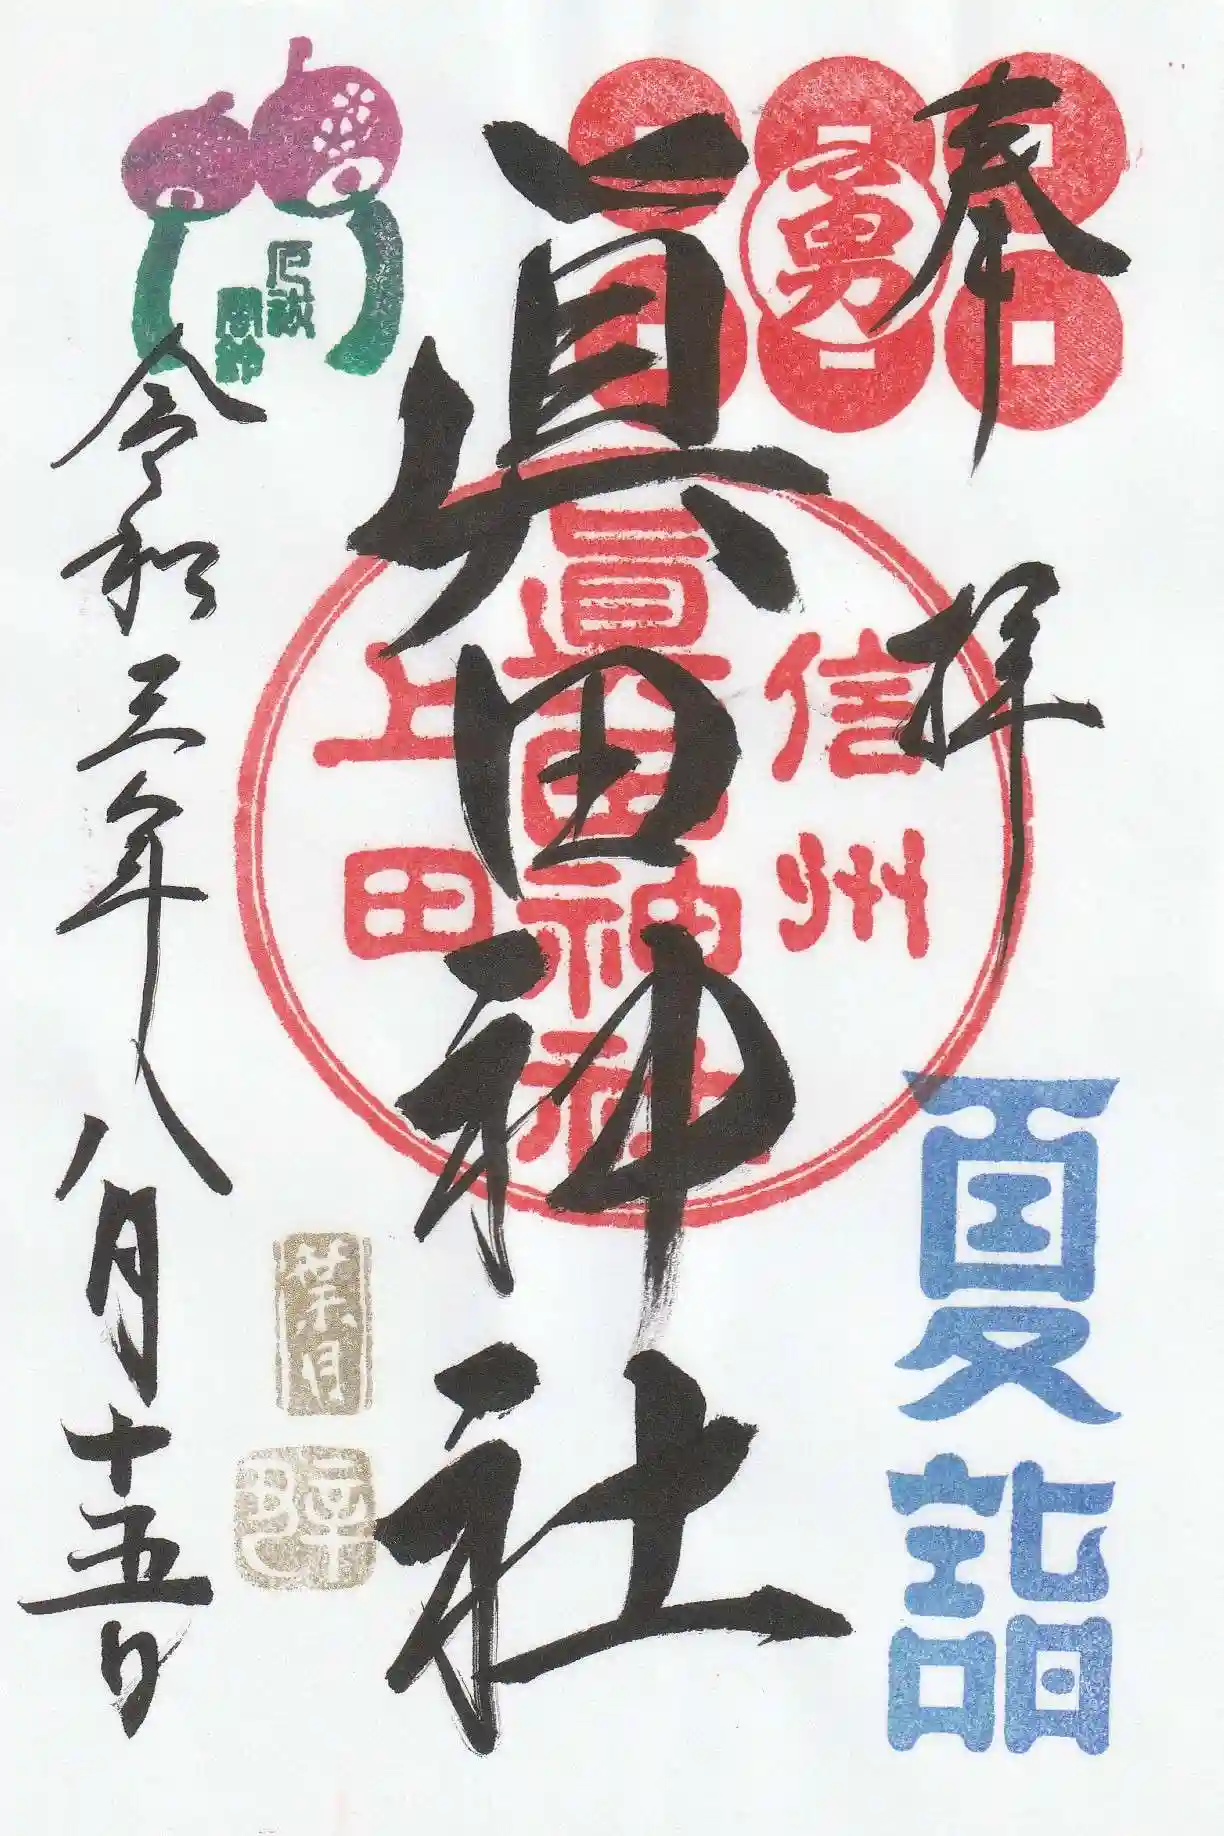 奉拝
勇
夏詣
信州
眞田神社
上田
眞田神社
葉月
厄祓
令和三年八月十五日